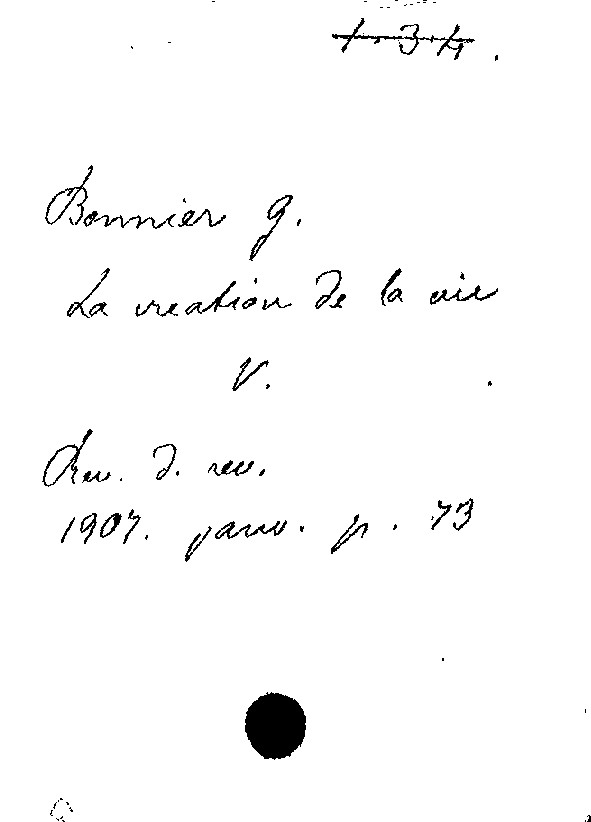 1.34.
Bonnier G.
La création de la vie
V.
Rev. d. rev.
1907. janv. p. 73